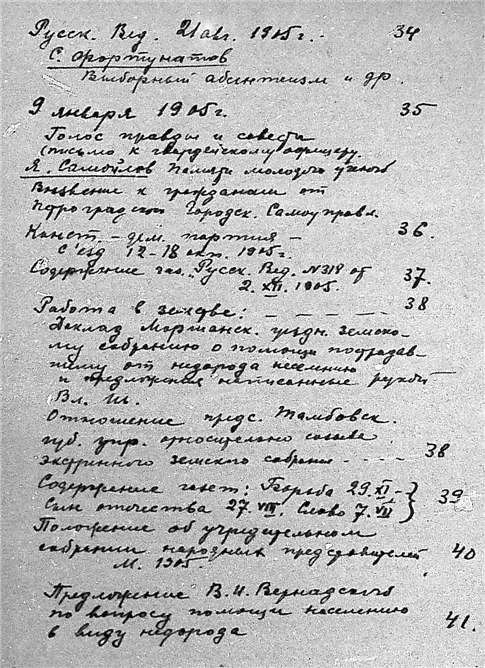 Русск. Вед. 21 авг. 1905 г. - 34
С. Фортунатов
Выборный абсентеизм и др.
9 января 1905 г. 35
Голос правды и совести
(письмо к гвардейскому офицеру.
Я. Самойлов Памяти молодого ученого
Воззвение к гражданам от
Петроградской Городск. Самоуправл.
Конст. - дем. партия - 36.
С'езд 12-18 окт. 1905 г.
Содержение газ. "Русск. Вед. № 318 от 37.
2. XII. 1905.
Работа в земстве: - - - - - 38
Доклад Моршанск. уездн. земско-
му собранию о помощи пострадав-
шему от недорода населению
и предложения написанные рукой
Вл. Ив.
Отношение предс. Тамбовск.
губ. упр. относительно созыва
экстренного земского собрания - - - - 38
Содержение газет: Борьба 29. XI - } 39
Сын отечества 27. VIII. Слово 7. VII }
Положение об учредительном
собрании народных представителей 40
М. 1905.
Предложение В. И. Вернадского
по вопросу помощи населению
в виду недорода 41.